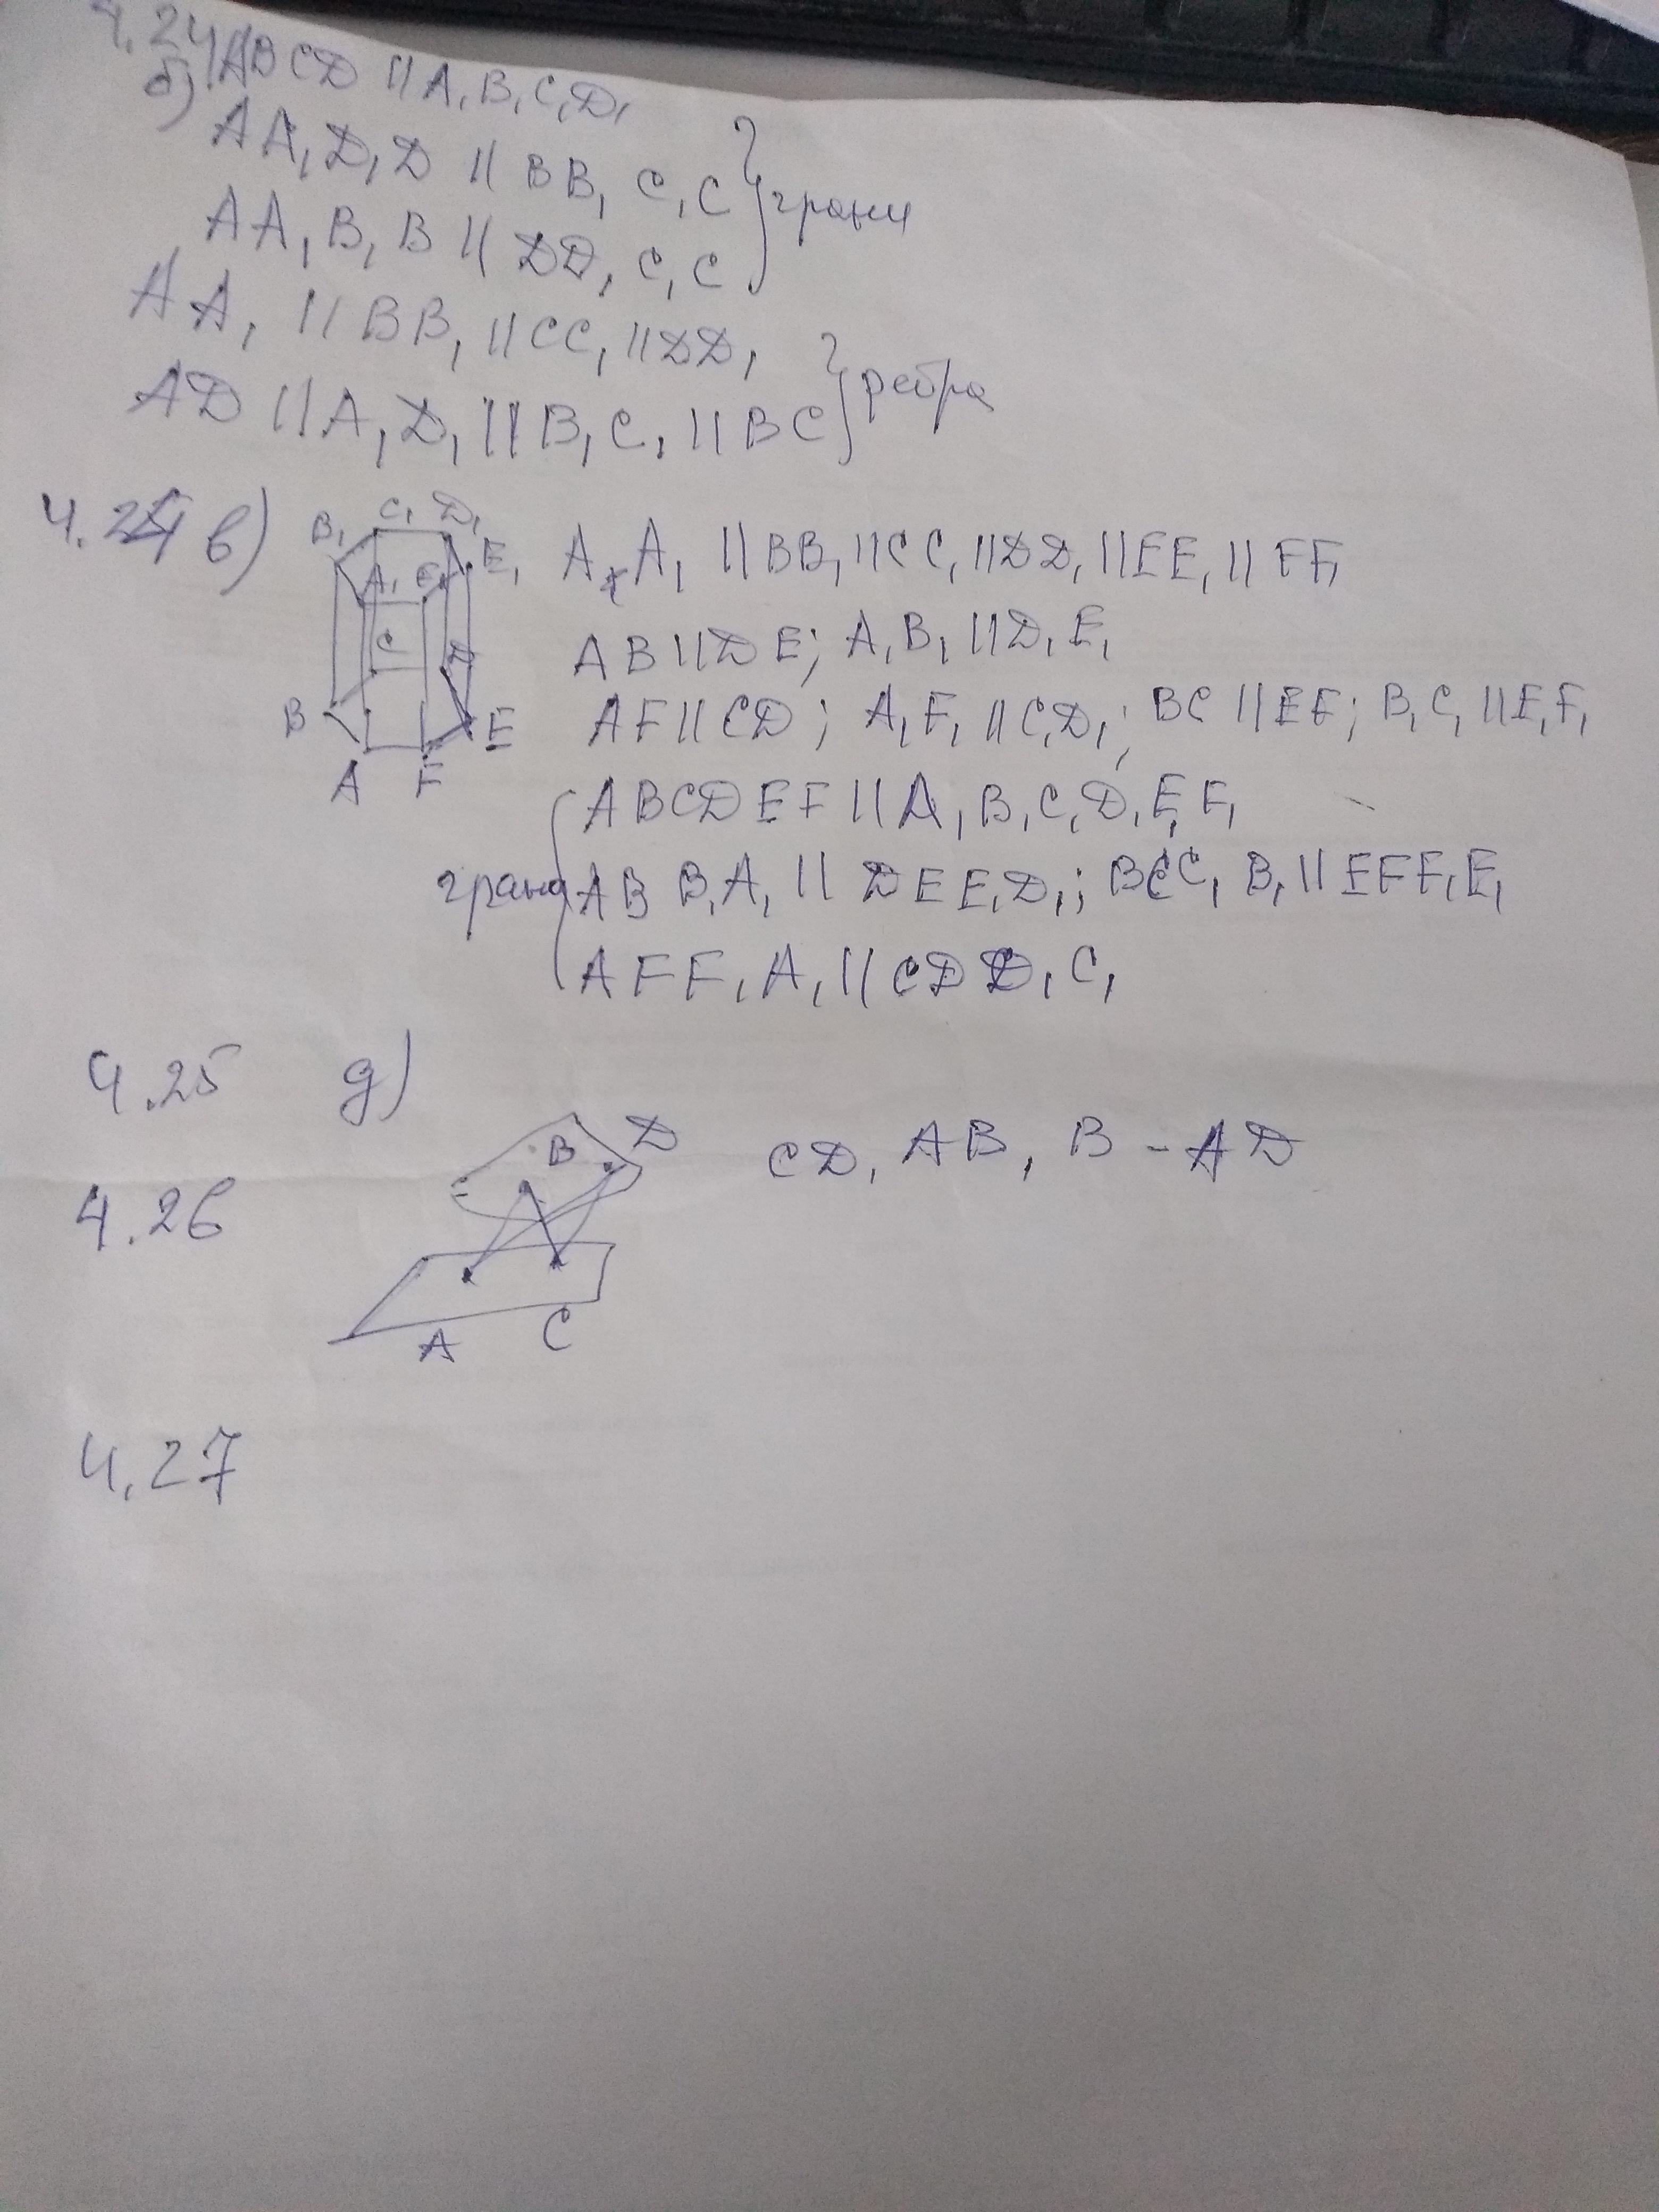 4.24
б) ABCD || A₁B₁C₁D₁
AA₁D₁D || BB₁C₁C
AA₁B₁B || DD₁C₁C
грани
AA₁ || BB₁ || CC₁ || DD₁
AD || A₁D₁ || B₁C₁ || BC
ребра
4.24 в)
B₁ C₁ D₁
A₁ F₁ E₁
C D
B E
A F
AA₁ || BB₁ || CC₁ || DD₁ || EE₁ || FF₁
AB || DE; A₁B₁ || D₁E₁
AF || CD; A₁F₁ || C₁D₁; BC || EF; B₁C₁ || E₁F₁
ABCDEF || A₁B₁C₁D₁E₁F₁
грани
ABB₁A₁ || DEE₁D₁; BCC₁B₁ || EFF₁E₁
AFF₁A₁ || CDD₁C₁
4.25 д)
B D
CD, AB, B - AD
4.26
A C
4.27